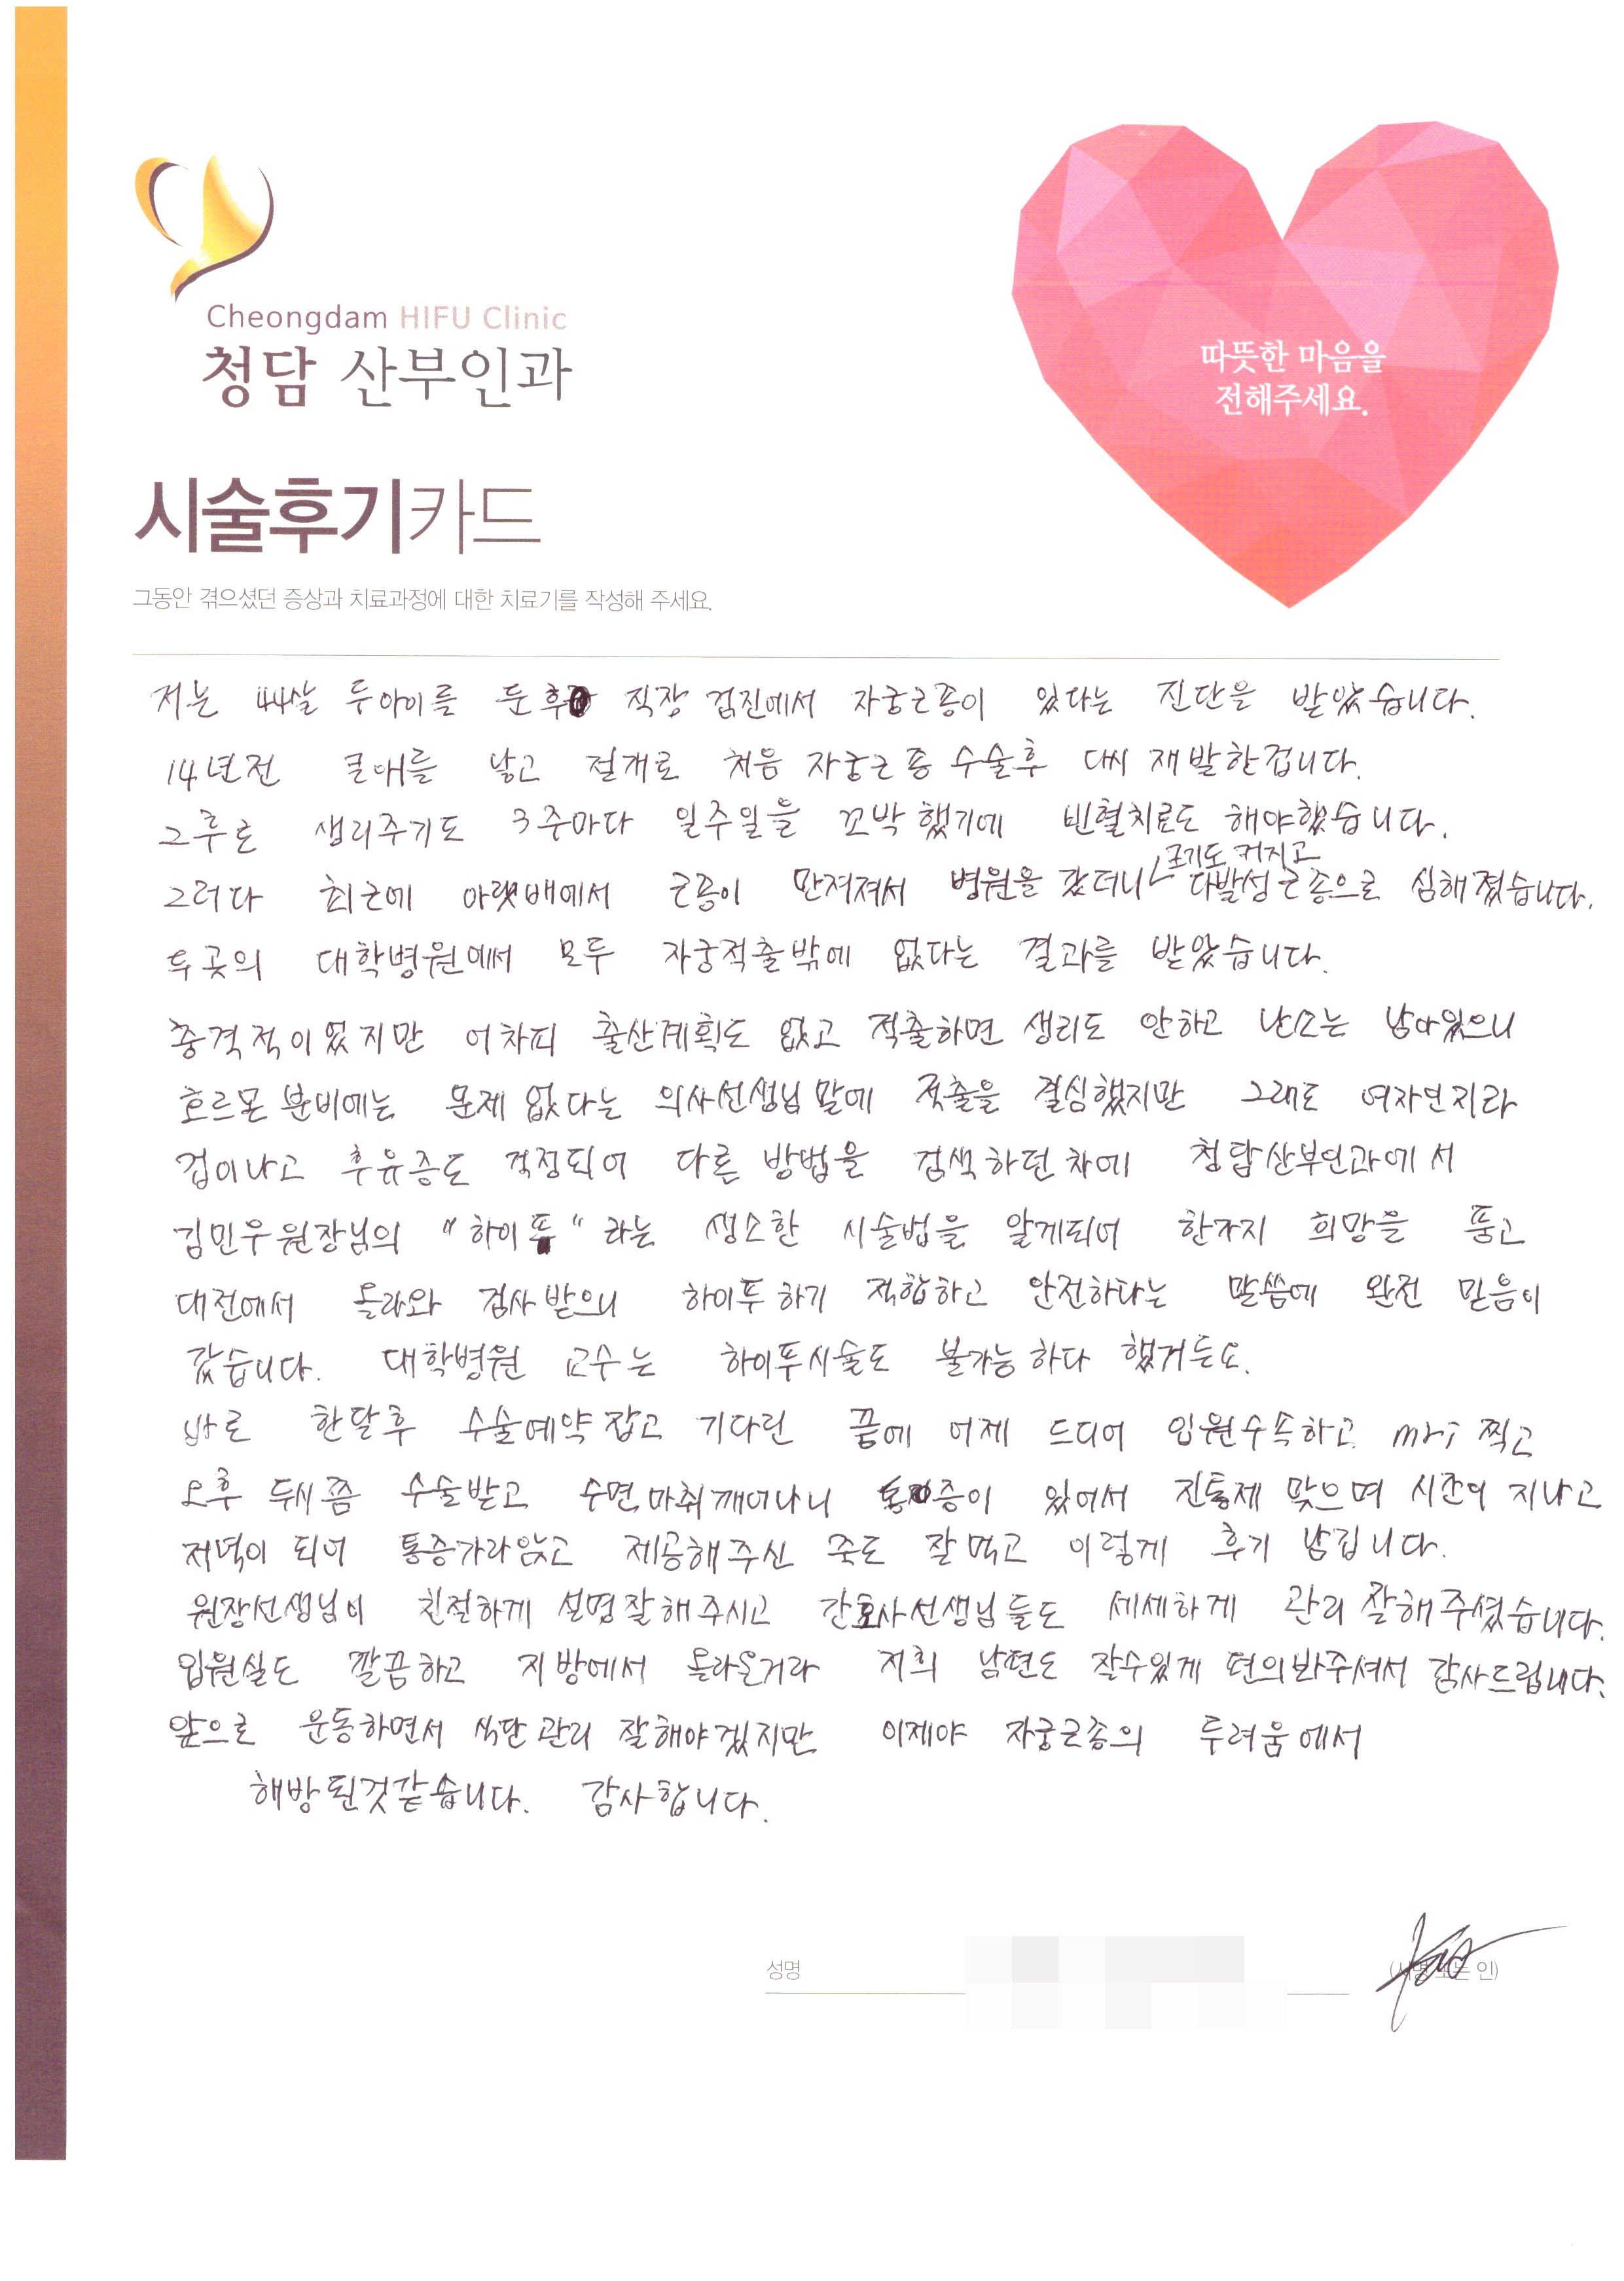 Cheongdam HIFU Clinic
청담 산부인과
따뜻한 마음을
전해주세요.
시술후기카드
그동안 겪으셨던 증상과 치료과정에 대한 치료기를 작성해 주세요.
저는 44살 두아이를 둔 후 직장 검진에서 자궁근종이 있다는 진단을 받았습니다.
14년전 큰애를 낳고 절개로 처음 자궁근종 수술후 다시 재발한겁니다.
그후로 생리주기도 3주마다 일주일을 꼬박했기에 빈혈치료도 해야했습니다.
크기도 커지고
그러다 최근에 아랫배에서 근종이 만져져서 병원을 갔더니 다발성근종으로 심해졌습니다.
두곳의 대학병원에서 모두 자궁적출밖에 없다는 결과를 받았습니다.
충격적이었지만 어차피 출산계획도 없고 적출하면 생리도 안하고 난소는 남아있으니
호르몬 분비에는 문제 없다는 의사선생님말에 적출을 결심했지만 그래도 여자인지라
겁이나고 후유증도 걱정되어 다른 방법을 검색하던 차에 청담산부인과에서
김민우원장님의 "하이푸" 라는 생소한 시술법을 알게되어 한가지 희망을 품고
대전에서 올라와 검사받으니 하이푸하기 적합하고 안전하다는 말씀에 완전 믿음이
갔습니다. 대학병원 교수는 하이푸시술도 불가능하다 했거든요.
바로 한달후 수술예약잡고 기다린 끝에 어제 드디어 입원수속하고 mri 찍고
오후 두시쯤 수술받고 수면마취깨어나니 통증이 있어서 진통제 맞으며 시간이 지나고
저녁이 되어 통증가라앉고 제공해주신 죽도 잘먹고 이렇게 후기 남깁니다.
원장선생님이 친절하게 설명잘해주시고 간호사선생님들도 세세하게 관리잘해주셨습니다.
입원실도 깔끔하고 지방에서 올라온거라 저희 남편도 잘수있게 편의봐주셔서 감사드립니다.
앞으로 운동하면서 식단관리 잘해야겠지만 이제야 자궁근종의 두려움에서
해방된것같습니다. 감사합니다.
성명
(서명 또는 인)